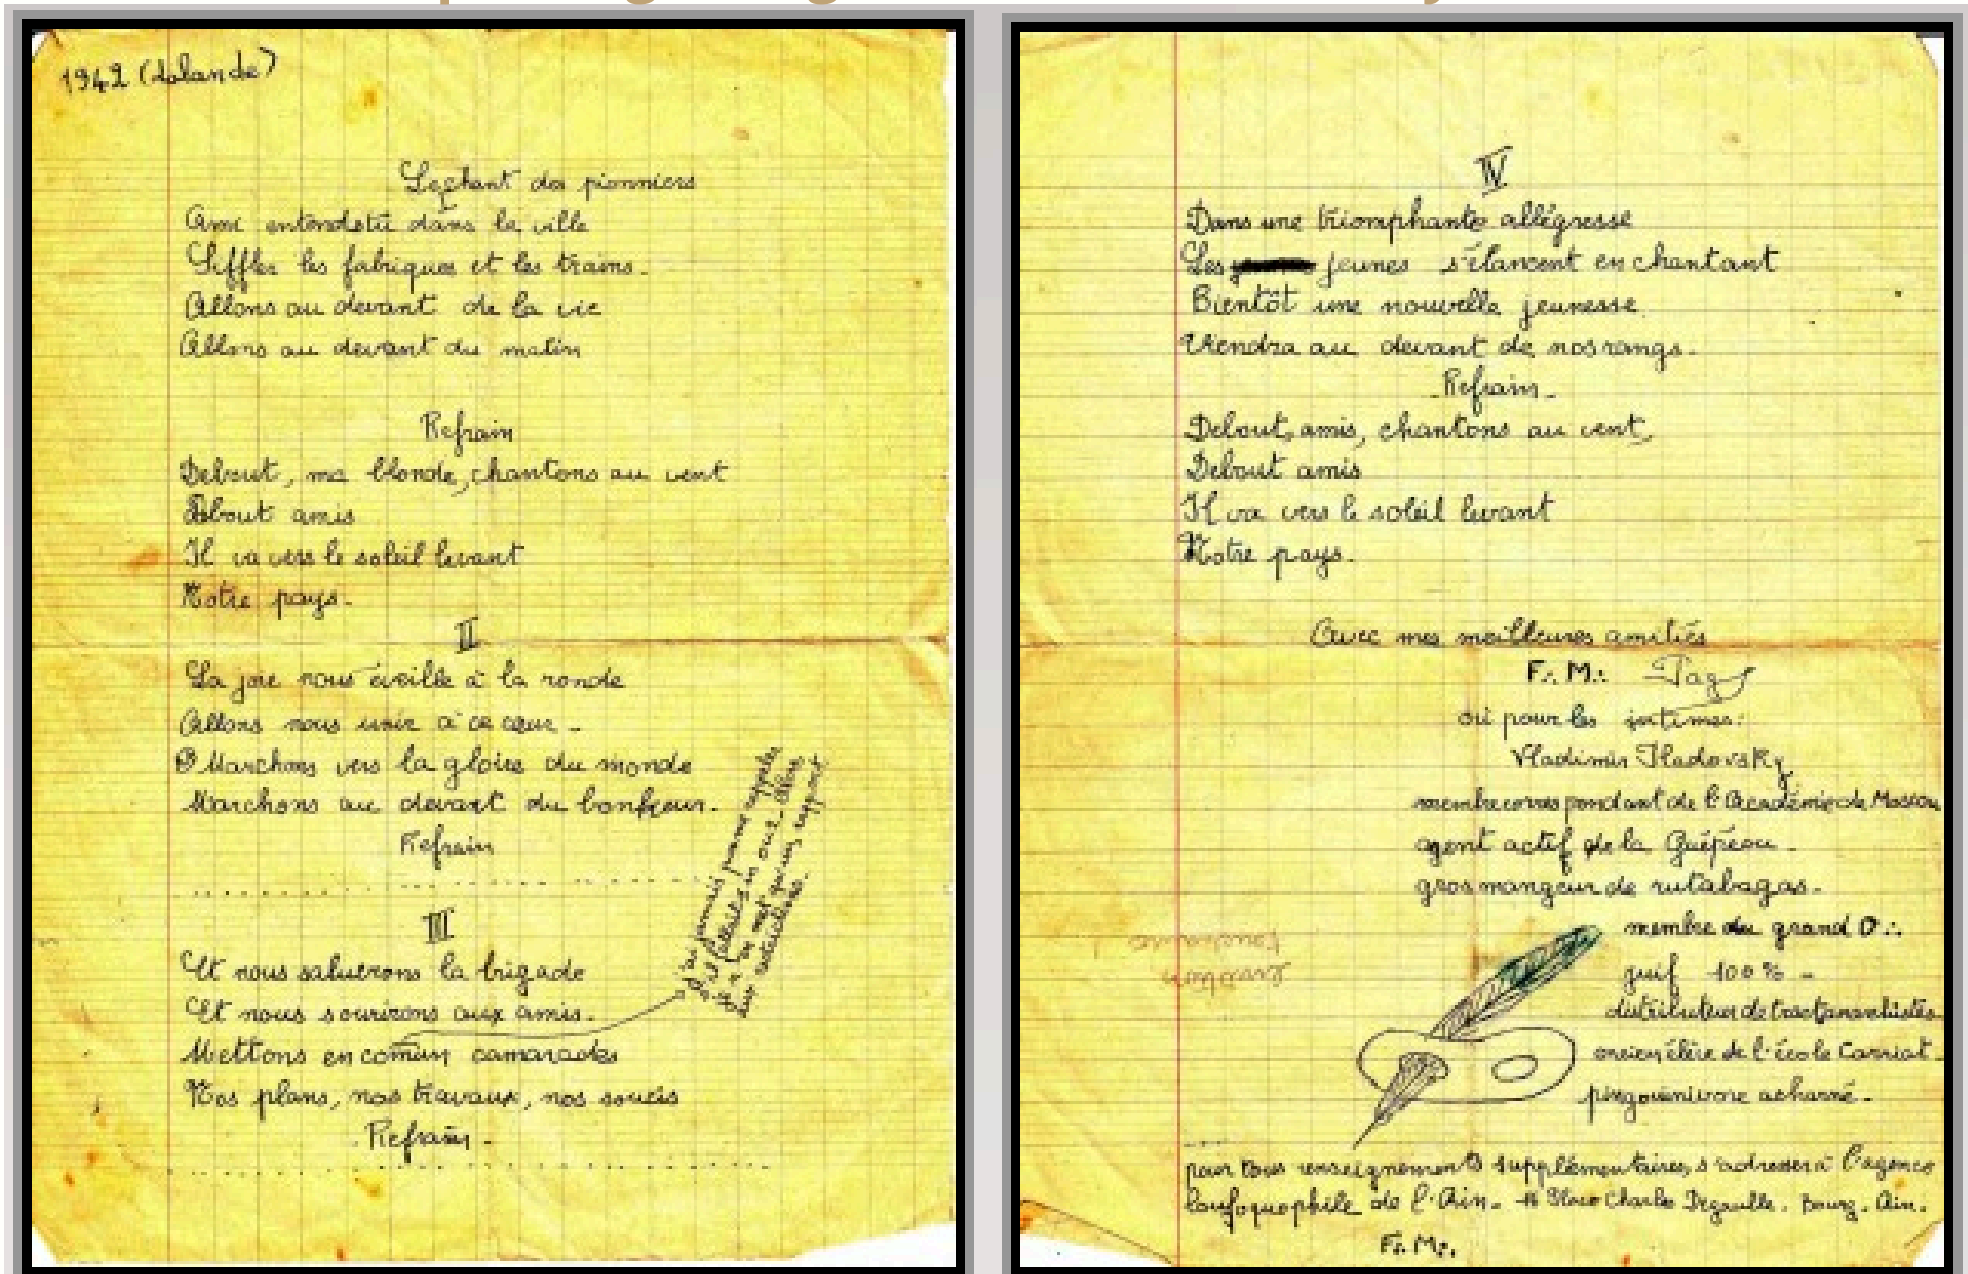 1942 (Lalande)
Le chant des pionniers
Ami entendstu dans la ville
Siffler les fabriques et les trains.
Allons au devant de la vie
Allons au devant du matin
Refrain
Debout, ma blonde, chantons au vent
Debout amis
Il va vers le soleil levant
Notre pays.
II
La joie nous éveille à la ronde
Allons nous unir à ce cœur.
Marchons vers la gloire du monde
Marchons au devant du bonheur.
Refrain
III
Et nous saluerons la brigade
Et nous sourirons aux amis.
Mettons en comun camarades
Nos plans, nos travaux, nos soucis
Refrain.
j'ai jamais pu me rappeler
s'il fallait un ou 2. Alors
je n'en met qu'un rapport
aux restrictions.
IV
Dans une triomphante allégresse
Les jeunes s'élancent en chantant
Bientôt une nouvelle jeunesse
Viendra au devant de nos rangs.
Refrain.
Debout, amis, chantons au vent,
Debout amis
Il va vers le soleil levant
Notre pays.
Avec mes meilleures amitiés
F∴ M∴
ou pour les intimes:
Vladimir
membre correspondant de l'Académie de Moscou
agent actif de la Guépéou.
gros mangeur de rutabagas.
membre du grand O∴
juif 100 %
distributeur de tracts
ancien élève de l'école Carriat.
pingouinivore acharné.
pour tous renseignements supplémentaires s'adresser à l'agence
loufoquophile de l'Ain. Place Charles Degaulle. Bourg. Ain.
F∴ M∴